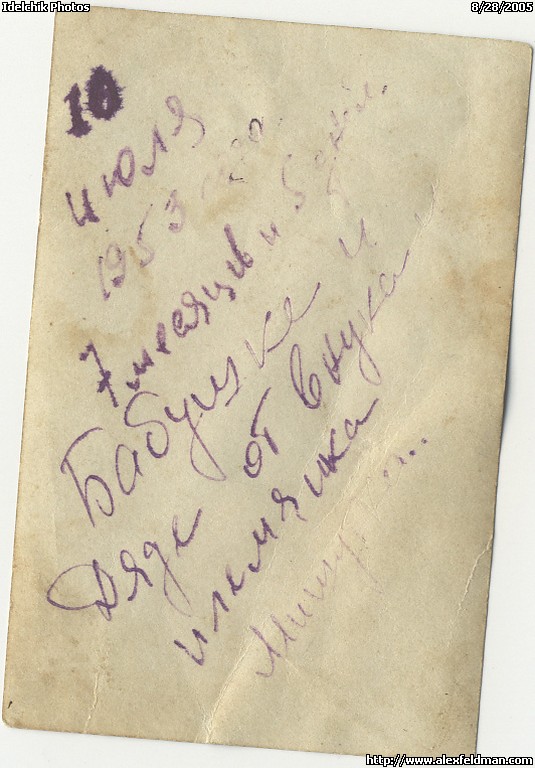 Idelchik Photos
8/28/2005
10
июля
1953 года
7 месяцев и 5 дней.
Бабушке и
Дяде от внука и
племяника
http://www.alexfeldman.com